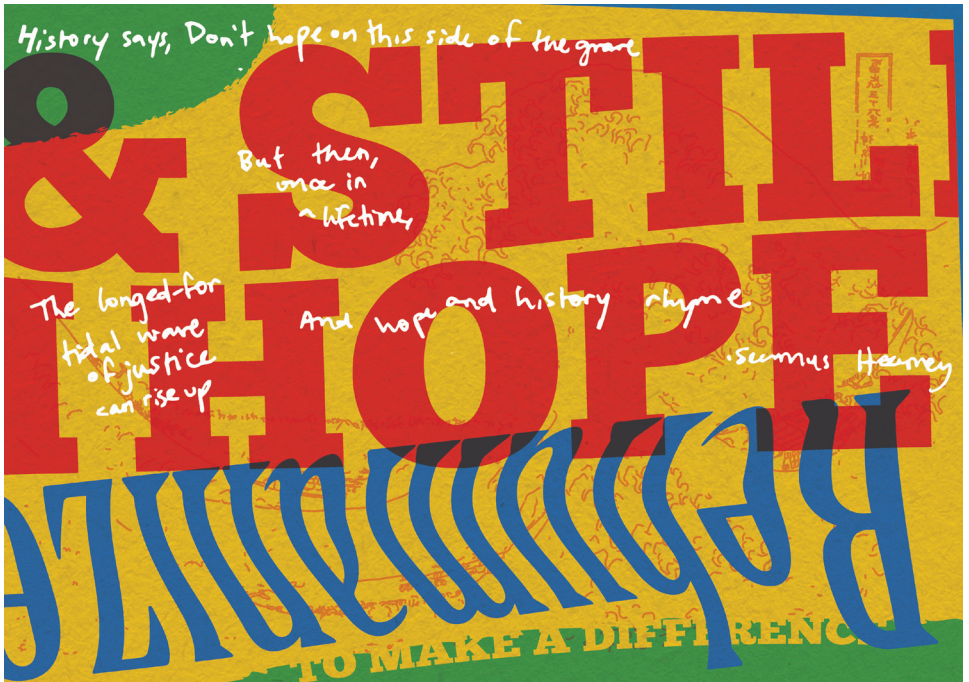 History says, Don't hope on this side of the grave
& STILL
But then,
once in
a lifetime,
The longed-for
tidal wave
of justice
can rise up
And hope and history rhyme
HOPE
.Seamus Heaney
Rehumanize
TO MAKE A DIFFERENCE